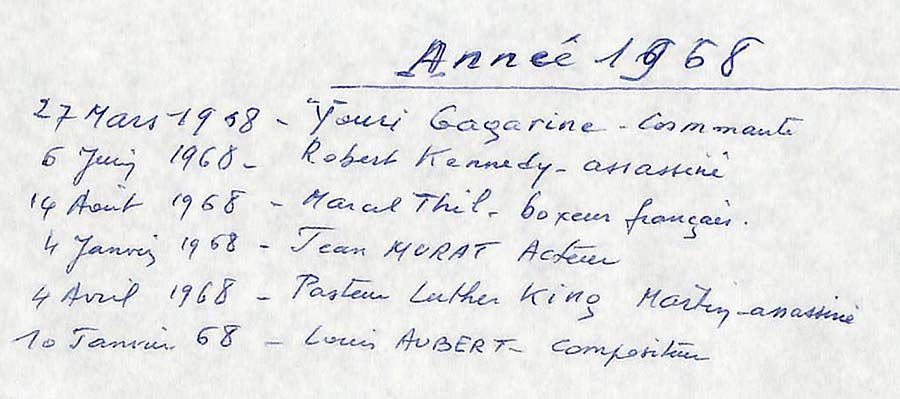 Année 1968
27 Mars 1968 - Youri Gagarine - Cosmonaute
6 Juin 1968 - Robert Kennedy - assassiné
14 Août 1968 - Marcel Thil - boxeur français.
4 Janvier 1968 - Jean MURAT Acteur
4 Avril 1968 - Pasteur Luther King Martin - assassiné
10 Janvier 68 - Louis AUBERT - Compositeur